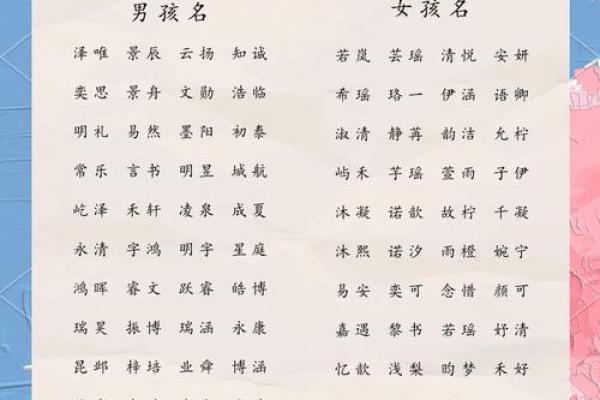 男孩名
泽唯 景辰 云扬 知诚
奕思 景舟 文勋 浩临
明礼 易然 墨阳 初泰
常乐 言书 明昱 城航
屹泽 禾轩 凌泉 成夏
永清 字鸿 明宇 星庭
鸿晖 睿文 跃睿 皓博
瑞昊 振博 瑞涵 永康
昆邺 梓培 业舜 博涵
女孩名
若岚 芸瑶 清悦 安妍
希瑶 珞一 伊涵 语卿
淑清 静苒 韵洁 允柠
屿禾 芊瑶 萱雨 子伊
沐凝 诺歆 故柠 千凝
沐熙 诺汐 雨橙 婉宁
易安 奕可 念惜 颜可
嘉遇 黎书 若瑶 妤清
忆歆 浅梨 昀梦 禾好